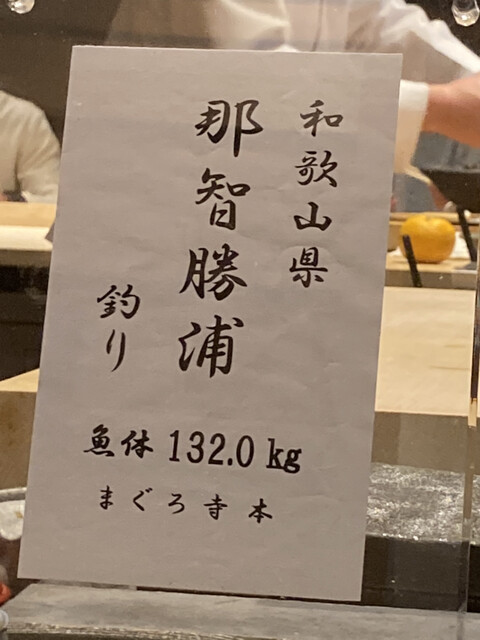 和歌山県
那智勝浦
釣り
魚体 132.0 kg
まぐろ寺本